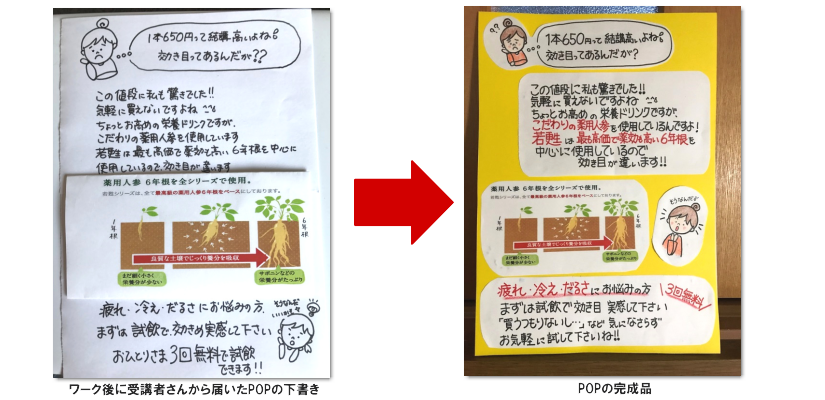 1本650円って結構高いよね。
効き目ってあるんだが??
この値段に私も驚きでした!!
気軽に買えないですよね
ちょっとお高めの栄養ドリンクですが、
こだわりの薬用人参を使用しています
若甦は最も高価で薬効も高い6年根を中心に
使用しているので効き目が違います
薬用人参 6年根を全シリーズで使用。
若甦シリーズは、全て最高級の薬用人参6年根をベースにしております。
1年根
6年根
良質な土壌でじっくり養分を吸収
まだ細く小さく
栄養分が少ない
サポニンなどの
栄養分がたっぷり
疲れ・冷え・だるさにお悩みの方、
まずは試飲で、効きめ実感して下さい
おひとりさま3回無料で試飲
できます!!
そうなんだ
ワーク後に受講者さんから届いたPOPの下書き
??
1本650円って結講高いよね。
効き目ってあるんだが?
この値段に私も驚きでした!!
気軽に買えないですよね
ちょっとお高めの栄養ドリンクですが、
こだわりの薬用人参を使用しているんですよ!
若甦は最も高価で薬効も高い6年根を
中心に使用しているので
効き目が違います!!
薬用人参 6年根を全シリーズで使用。
若甦シリーズは、全て最高級の薬用人参6年根をベースにしております。
1年根
6年根
良質な土壌でじっくり養分を吸収
まだ細く小さく
栄養分が少ない
サポニンなどの
栄養分がたっぷり
そうなんだぁ
疲れ・冷え・だるさにお悩みの方
3回無料
まずは試飲で効き目 実感して下さい
「買うつもりないし…」など 気になさらず
お気軽に試して下さいね!!
POPの完成品